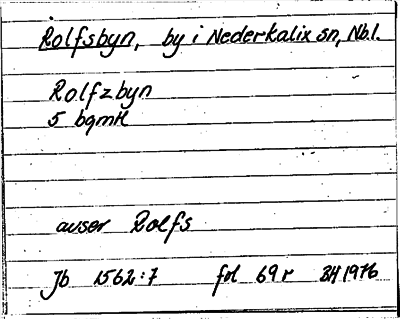 Rolfsbyn, by i Nederkalix sn, Nb.l.
Rolfzbyn
5 bgmtl
avser Rolfs
Jb 1562:7 fol 69r BH 1976